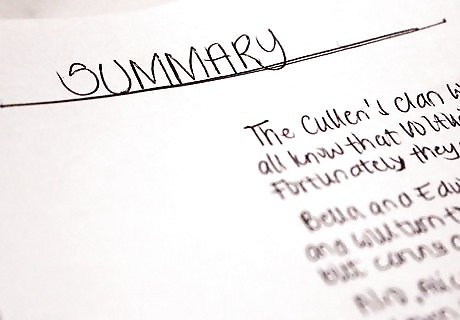 SUMMARY
The Cullen's clan
all know that Voltu
Fortunately they
Bella and Edw
and will turn
but